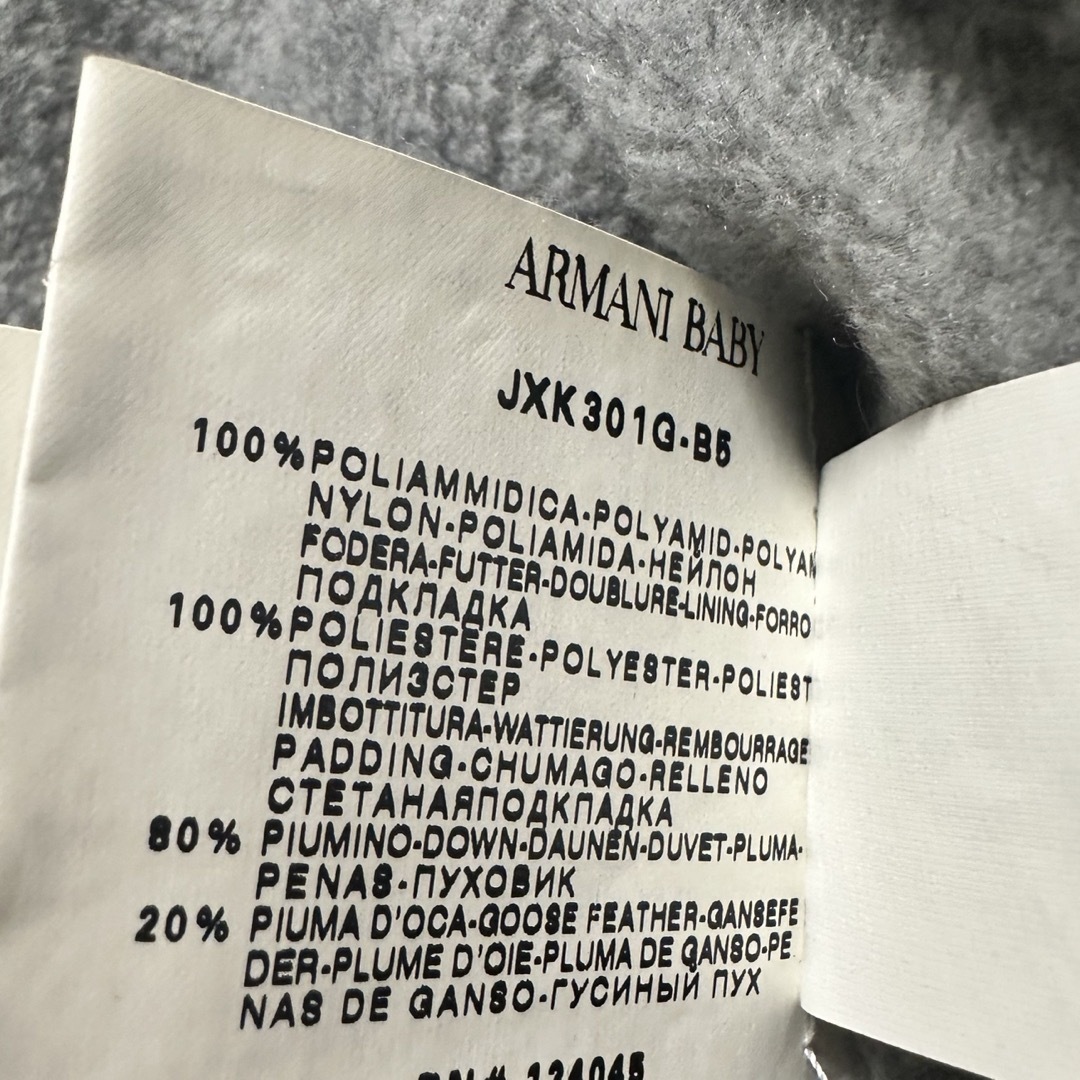 ARMANI BABY
JXK301G-B5
100% POLIAMMIDICA-POLYAMID-POLYAM
NYLON-POLIAMIDA-НЕЙЛОН
FODERA-FUTTER-DOUBLURE-LINING-FORRO
ПОДКЛАДКА
100% POLIESTERE-POLYESTER-POLIEST
ПОЛИЭСТЕР
IMBOTTITURA-WATTIERUNG-REMBOURRAGE
PADDING-CHUMAGO-RELLENO
СТЕТАНАЯПОДКЛАДКА
80% PIUMINO-DOWN-DAUNEN-DUVET-PLUMA-
PENAS-ПУХОВИК
20% PIUMA D'OCA-GOOSE FEATHER-GANSEFE
DER-PLUME D'OIE-PLUMA DE GANSO-PE
NAS DE GANSO-ГУСИНЫЙ ПУХ
RN# 124045